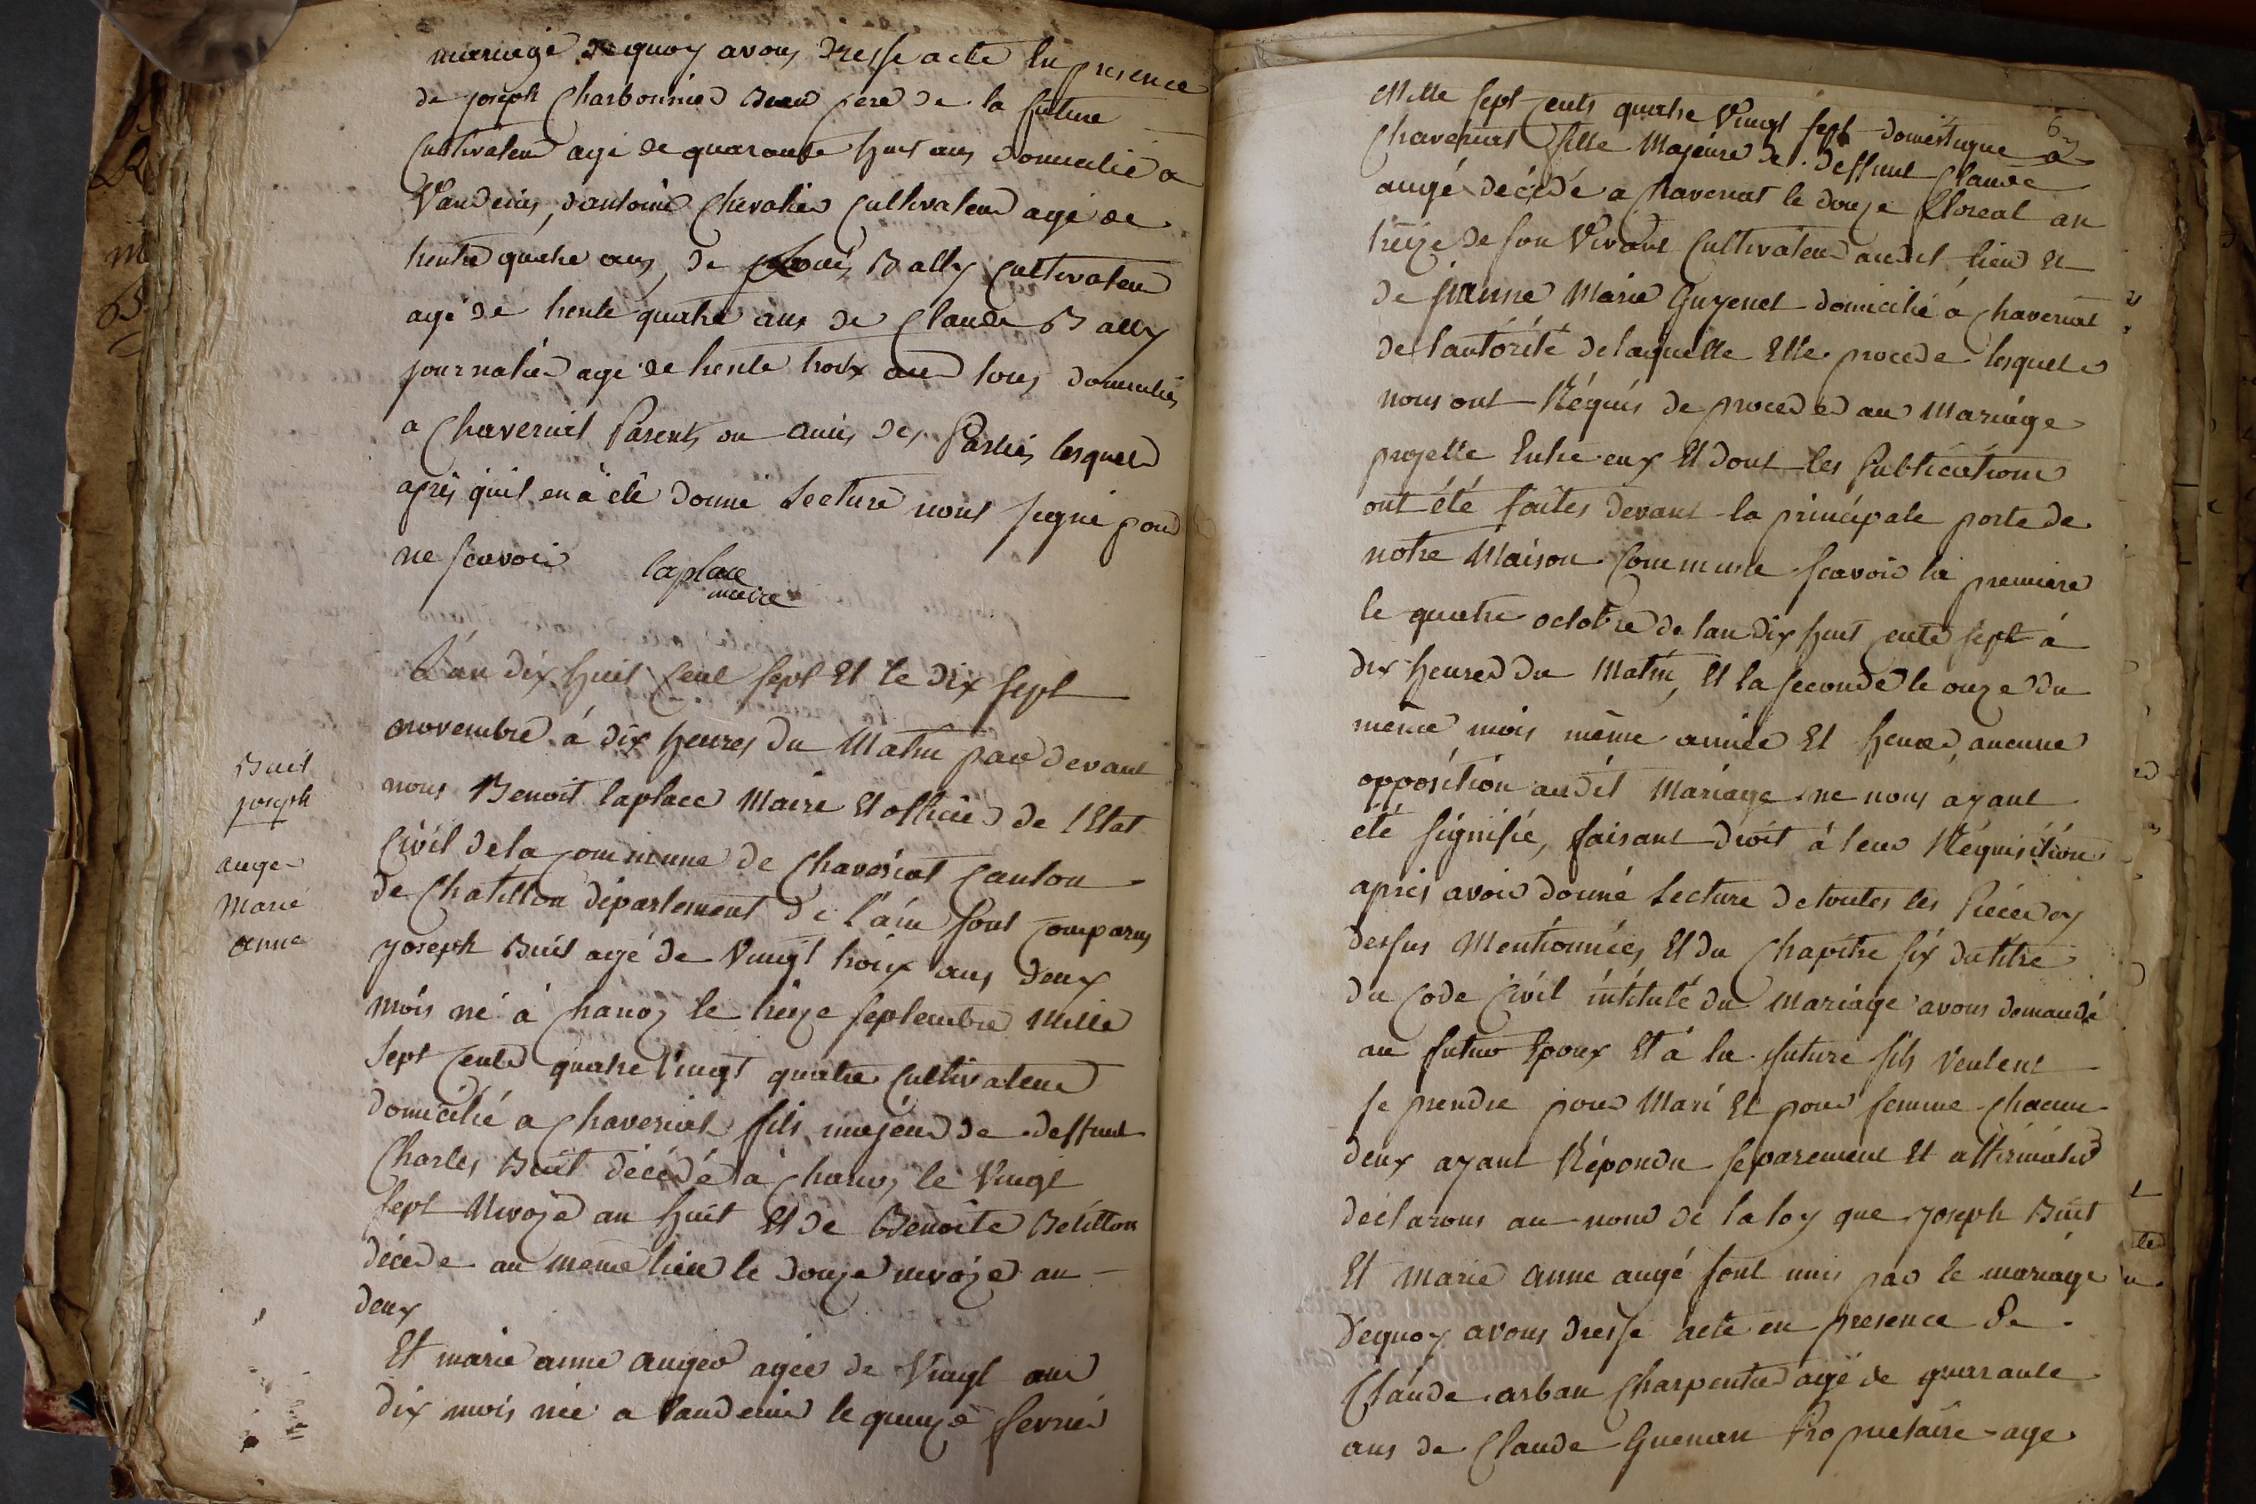 mariage de quoy avons dresse acte en presence
de joseph Charbonnier beau pere de la future
Cultivateur agé de quarante huit ans domicilié a
Vandeins, d'antoine Chevalier Cultivateur agé de
trente quatre ans, de Bally Cultivateur
agé de trente quatre ans de Claude Bally
journalier agé de trente troix ans tous domiciliés
a Chaveriat Parents ou amis des Parties lesquels
après quil en a été donné Lecture nont signé pour
ne scavoir laplace
maire
L'an dix huit cent sept Et le dix sept
novembre à dix heures du Matin par devant
nous Benoit laplace Maire Et officier de l'Etat
Civil de la Commune de Chaveriat Canton
de Chatillon département de l'ain sont comparus
joseph Buit agé de Vingt troix ans deux
mois né à Chanoz le treize septembre Mille
sept cents quatre Vingt quatre Cultivateur
domicilié a Chaveriat fils majeur de deffunt
Charles Buit décédé à Chanoz le Vingt
sept Nivoze an huit Et de Benoite
décédé au meme lieu le douze nivoze an
deux
Et marie anne auger agée de Vingt ans
dix mois née a Vandeins le quinze fevrier
Buit
joseph
auge
Marie
anne
Mille sept cents quatre Vingt sept domestique à
Chaveriat fille Majeure de deffunt Claude
augé décédé a Chaveriat le douze floreal an
treize de son Vivant Cultivateur audit lieu Et
de jeanne Marie Guyenet domicilié à Chaveriat
de l'autorité de laquelle Elle procede lesquels
nous ont Réquis de proceder au Mariage
projetté Entre eux Et dont les Publications
ont été faites devant la principale porte de
notre Maison Commune scavoir la premiere
le quatre octobre de lan dix huit cents sept à
dix heures du Matin, Et la seconde le onze du
même mois même année Et heure, aucune
opposition audit Mariage ne nous ayant
été signifié, faisant droit à leur Réquisition
apres avoir donné Lecture de toutes les Pièces cy
dessus Mentionnées, Et du Chapitre six du titre
du Code Civil intitulé du Mariage avons demandé
au futur Epoux Et à la future sils veulent
se prendre pour Mari Et pour femme chacun
deux ayant Répondu separement Et affirmativ
déclarons au nom de la loy que joseph Buit
Et marie anne augé sont unis par le mariage
dequoy avons dressé acte en presence de
Claude arban Charpentier agé de quarante
ans de Claude Guenan Propriétaire agé